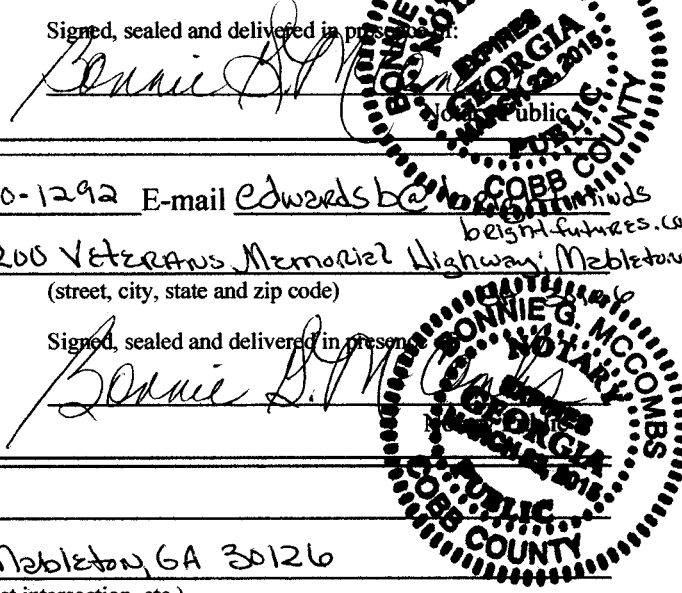 Signed, sealed and delivered in presence of:
Bonnie G. McCombs
Notary Public
BONNIE
NOTARY
EXPIRES
GEORGIA
MARCH 23, 2015
PUBLIC
COBB COUNTY
0-1292 E-mail edwardsb@ minds
bright-futures.co
200 Veterans Memorial Highway; Mableton
(street, city, state and zip code)
Signed, sealed and delivered in presence
Bonnie G. McCombs
BONNIE G. MCCOMBS
NOTARY
EXPIRES
GEORGIA
MARCH 23, 2015
PUBLIC
COBB COUNTY
Mableton, GA 30126